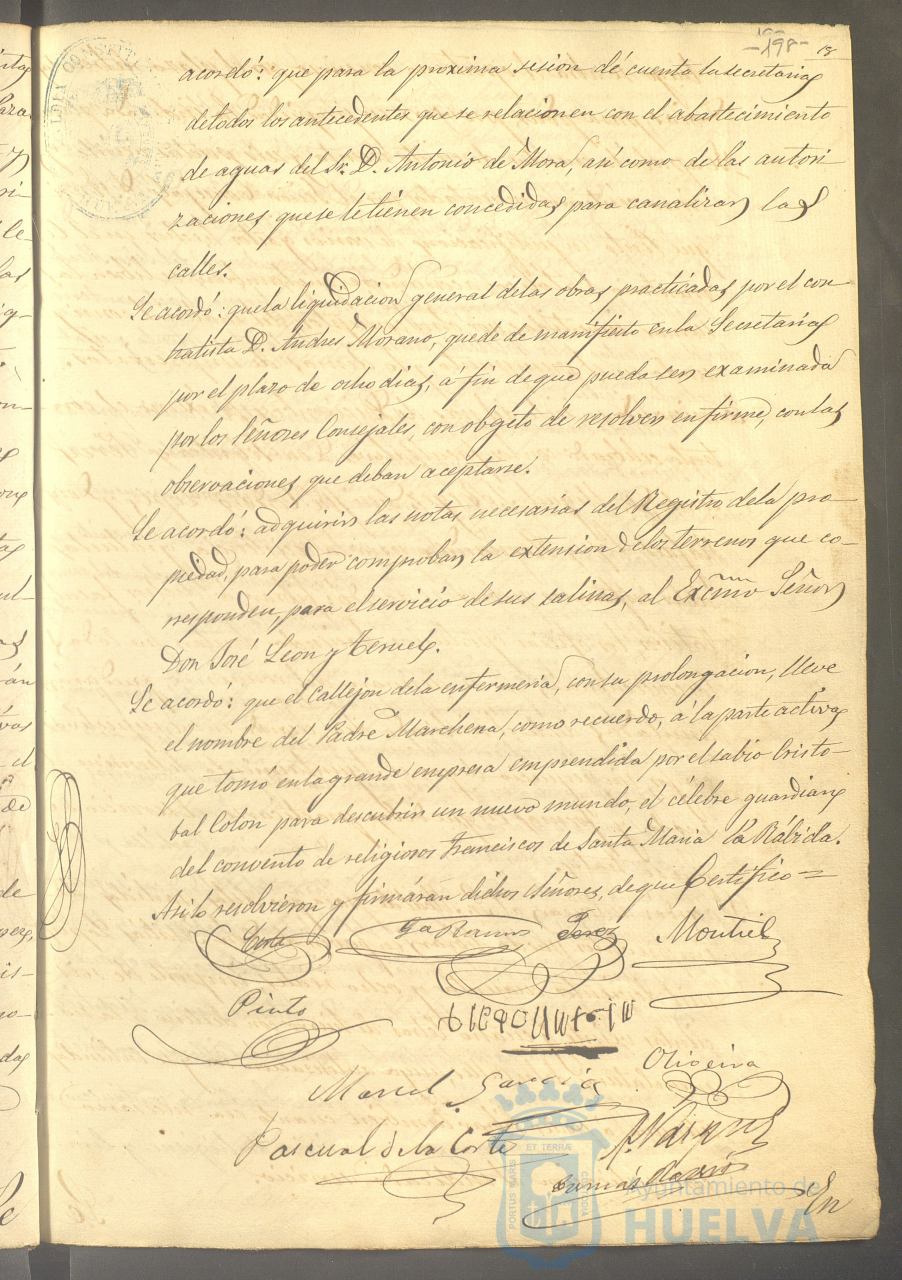 -198-
18
acordó: que para la proxima sesion dé cuenta la secretaria
de todos los antecedentes que se relacionen con el abastecimiento
de aguas del Sr. D. Antonio de Mora, asi como de las autori-
zaciones que se le tienen concedidas para canalizar las
calles.
Se acordó: que la liquidacion general de las obras practicadas por el con-
tratista D. Andres Morano, quede de manifiesto en la Secretaria
por el plazo de ocho dias, á fin de que pueda ser examinada
por los Señores Consejales, con obgeto de resolver en firme, con las
observaciones que deban aceptarse.
Se acordó: adquirir las notas necesarias del Registro de la pro-
piedad, para poder comprobar la extension de los terrenos que co-
rresponden, para el servicio de sus salinas, al Excmo Señor
Don José Leon y Teruel.
Se acordó: que el Callejon de la enfermeria, con su prolongacion, lleve
el nombre del Padre Marchena, como recuerdo, á la parte activa
que tomó en la grande empresa emprendida por el sabio Cristo-
bal Colon para descubrir un nuevo mundo, el célebre guardian
del convento de religiosos Franciscos de Santa Maria la Rábida.
Asi lo resolvieron y firmáran dichos Señores, de que Certifico =
Corte
Perez
Montiel
Pinto
Oliveira
Garcia
Pascual de la Corte
ET TERRÆ
PORTUS MARIS
CUSTODIA
Ayuntamiento de
HUELVA
En